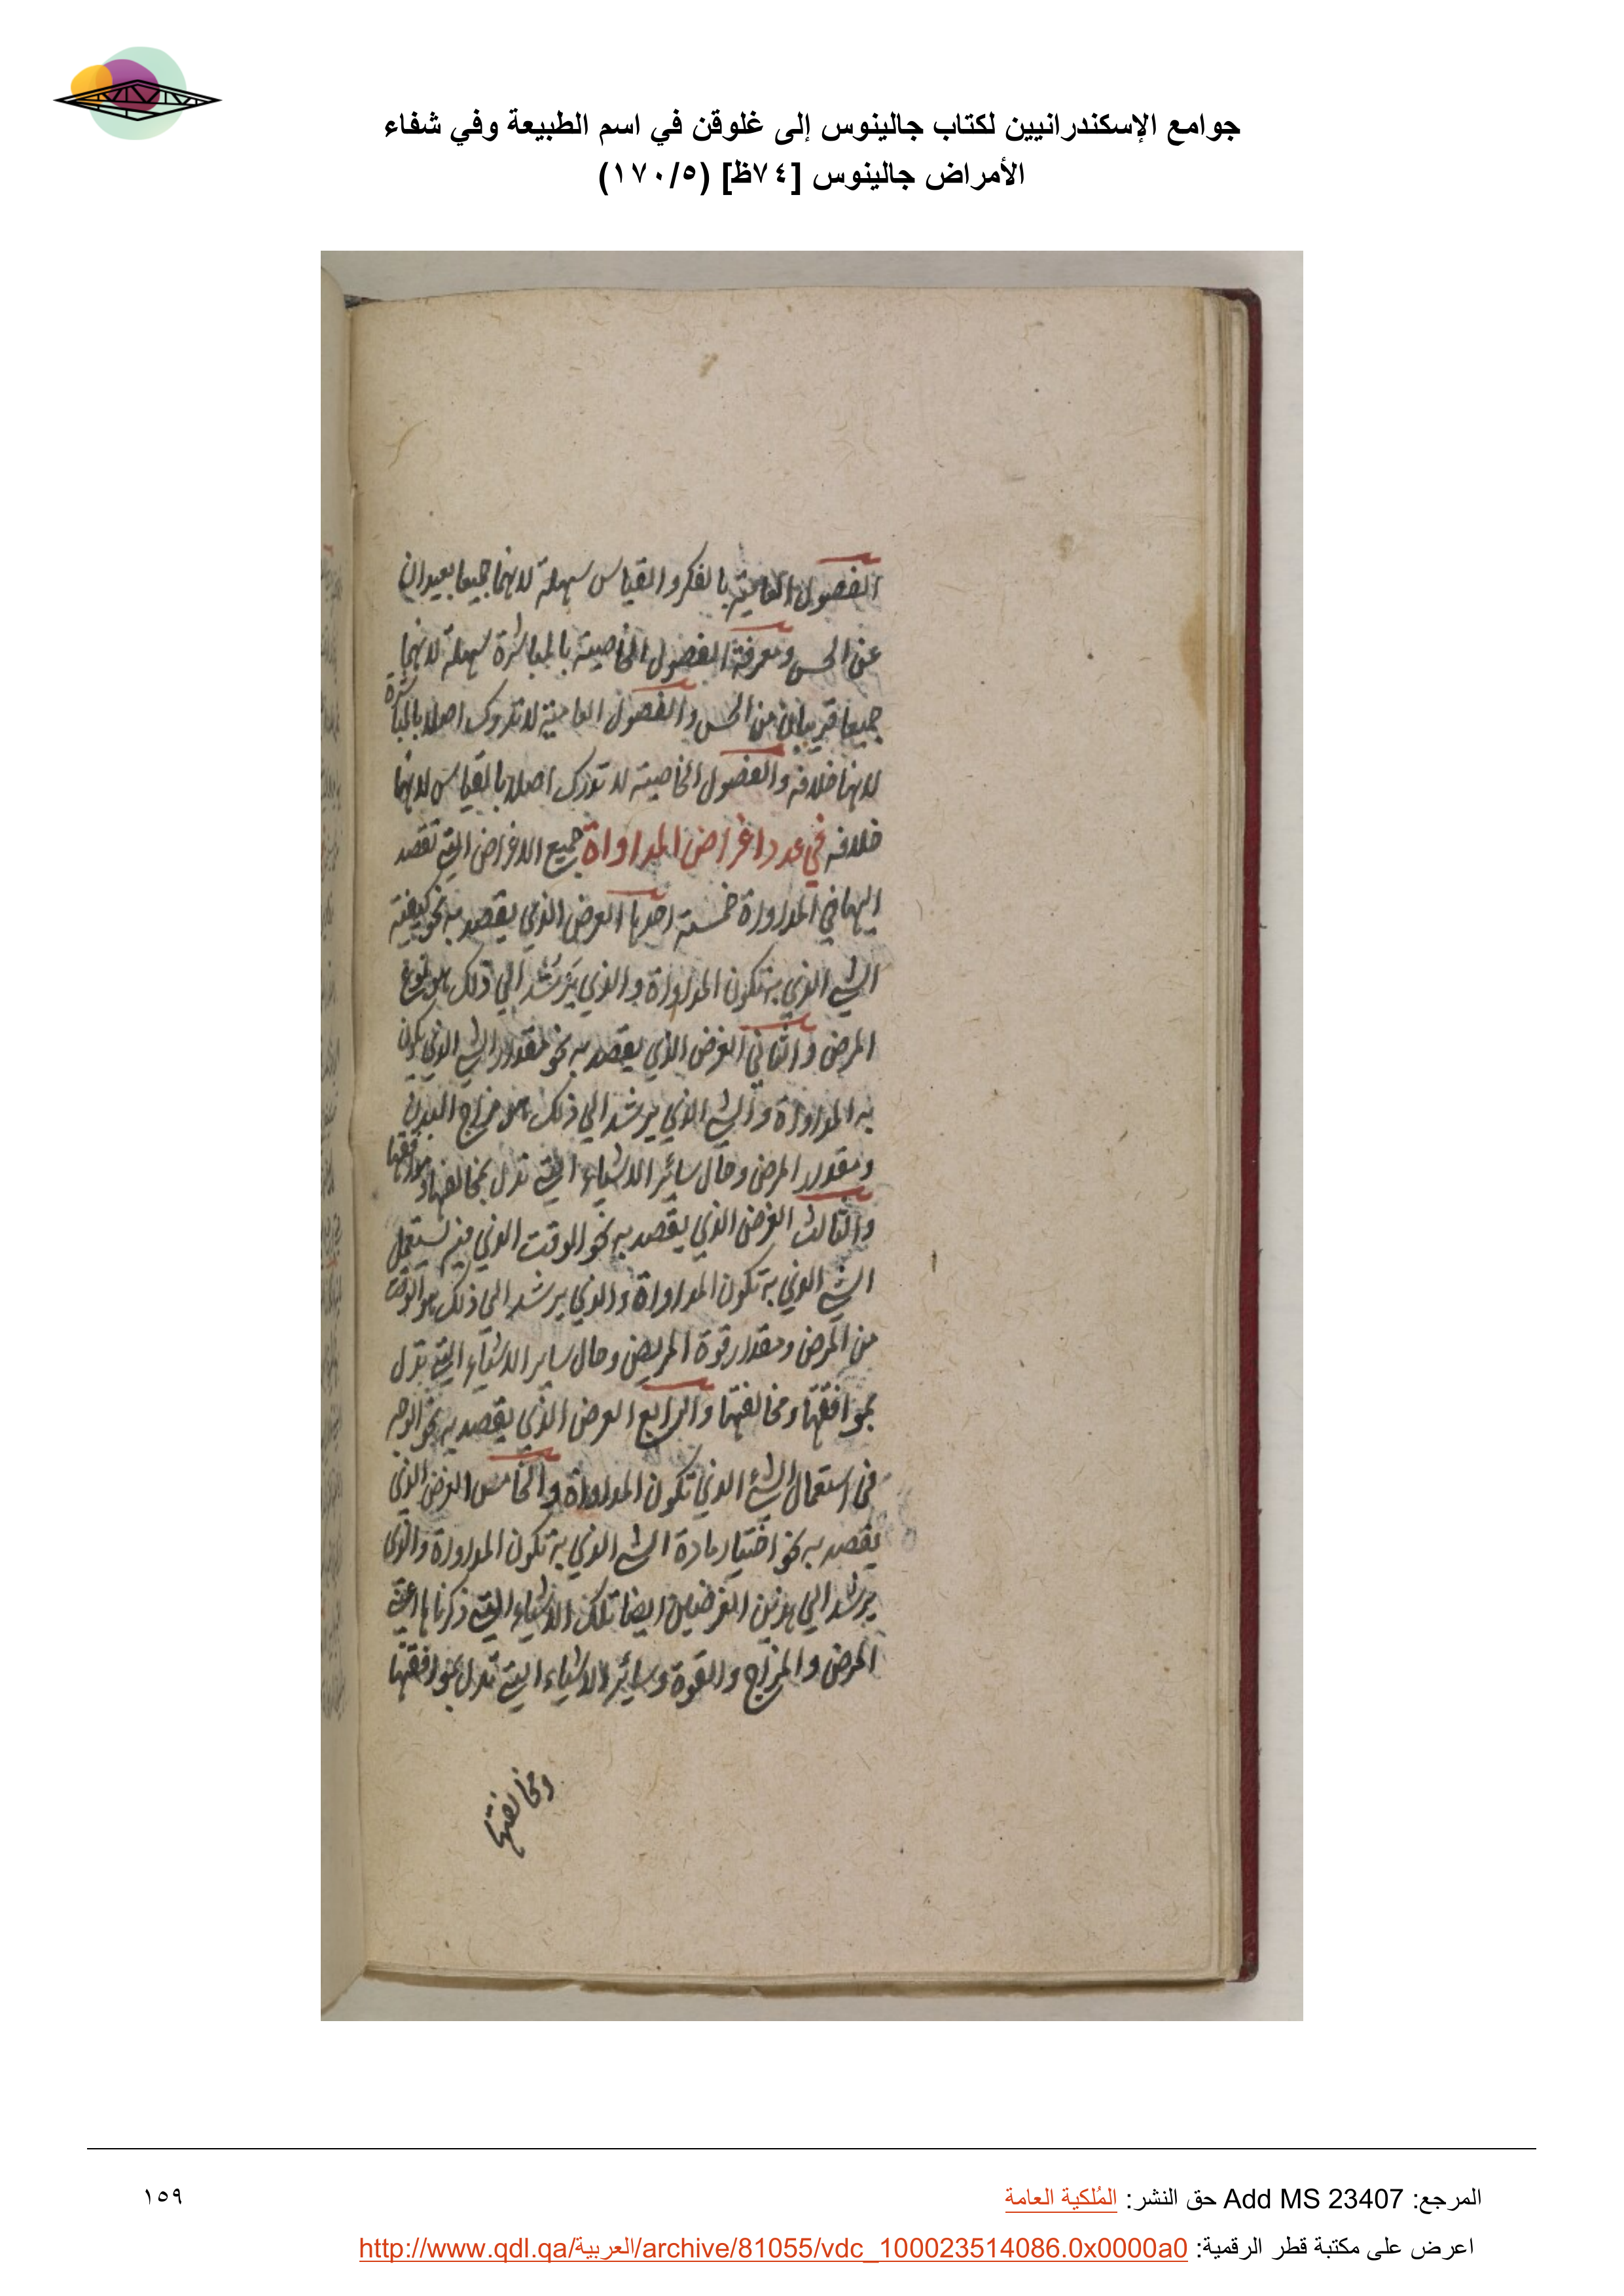 جوامع الإسكندرانيين لكتاب جالينوس إلى غلوقن في اسم الطبيعة وفي شفاء
الأمراض جالينوس [٧٤ظ] (١٧٠/٥)
الفصول العامية بالفكر والقياس سهلة لانهما جميعا بعيدان
عن الحس ومعرفة الفصول الخاصية بالمباشرة سهلة لانهما
جميعا قريبان من الحس والفصول العامية لا تدرك اصلا بالمباشرة
لانها خلافه والفصول الخاصية لا تدرك اصلا بالقياس لانها
خلافه في عدد اغراض المداواة جميع الاغراض التي تقصد
اليها في المداواة خمسة احدها الغرض الذي يقصد به نحو كيفية
الشي الذي به تكون المداواة والذي يرشد الي ذلك هو نوع
المرض والثاني الغرض الذي يقصد به نحو مقدار الشي الذي يكون
به المداواة والشي الذي يرشد الي ذلك هو مزاج البدن
ومقدار المرض وحال سائر الاشياء التي تدل بمخالفتها وموافقتها
والثالث الغرض الذي يقصد به نحو الوقت الذي فيه يستعمل
الشي الذي به تكون المداواة والذي يرشد الي ذلك هو الوقت
من المرض ومقدار قوة المريض وحال ساير الاشياء التي تدل
بموافقتها ومخالفتها والرابع الغرض الذي يقصد به نحو الوجه
في استعمال الشيء الذي تكون المداواة والخامس الغرض الذي
يقصد به نحو اختيار مادة الشي الذي به تكون المداواة والذي
يرشد الي هذين الغرضين ايضا تلك الاشياء التي ذكرناها اعني
المرض والمزاج والقوة وسائر الاشياء التي تدل بموافقتها
ومخالفتها
المرجع: Add MS 23407 حق النشر: المُلكية العامة
١٥٩
اعرض على مكتبة قطر الرقمية: http://www.qdl.qa/العربية/archive/81055/vdc_100023514086.0x0000a0